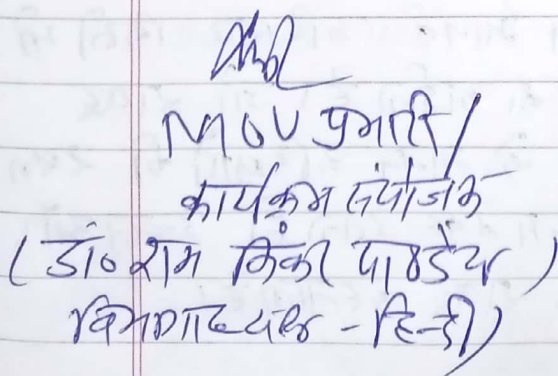 MOU प्रभारी/
कार्यक्रम संयोजक
(डॉ० राम किंकर पाण्डेय)
विभागाध्यक्ष - हिन्दी)